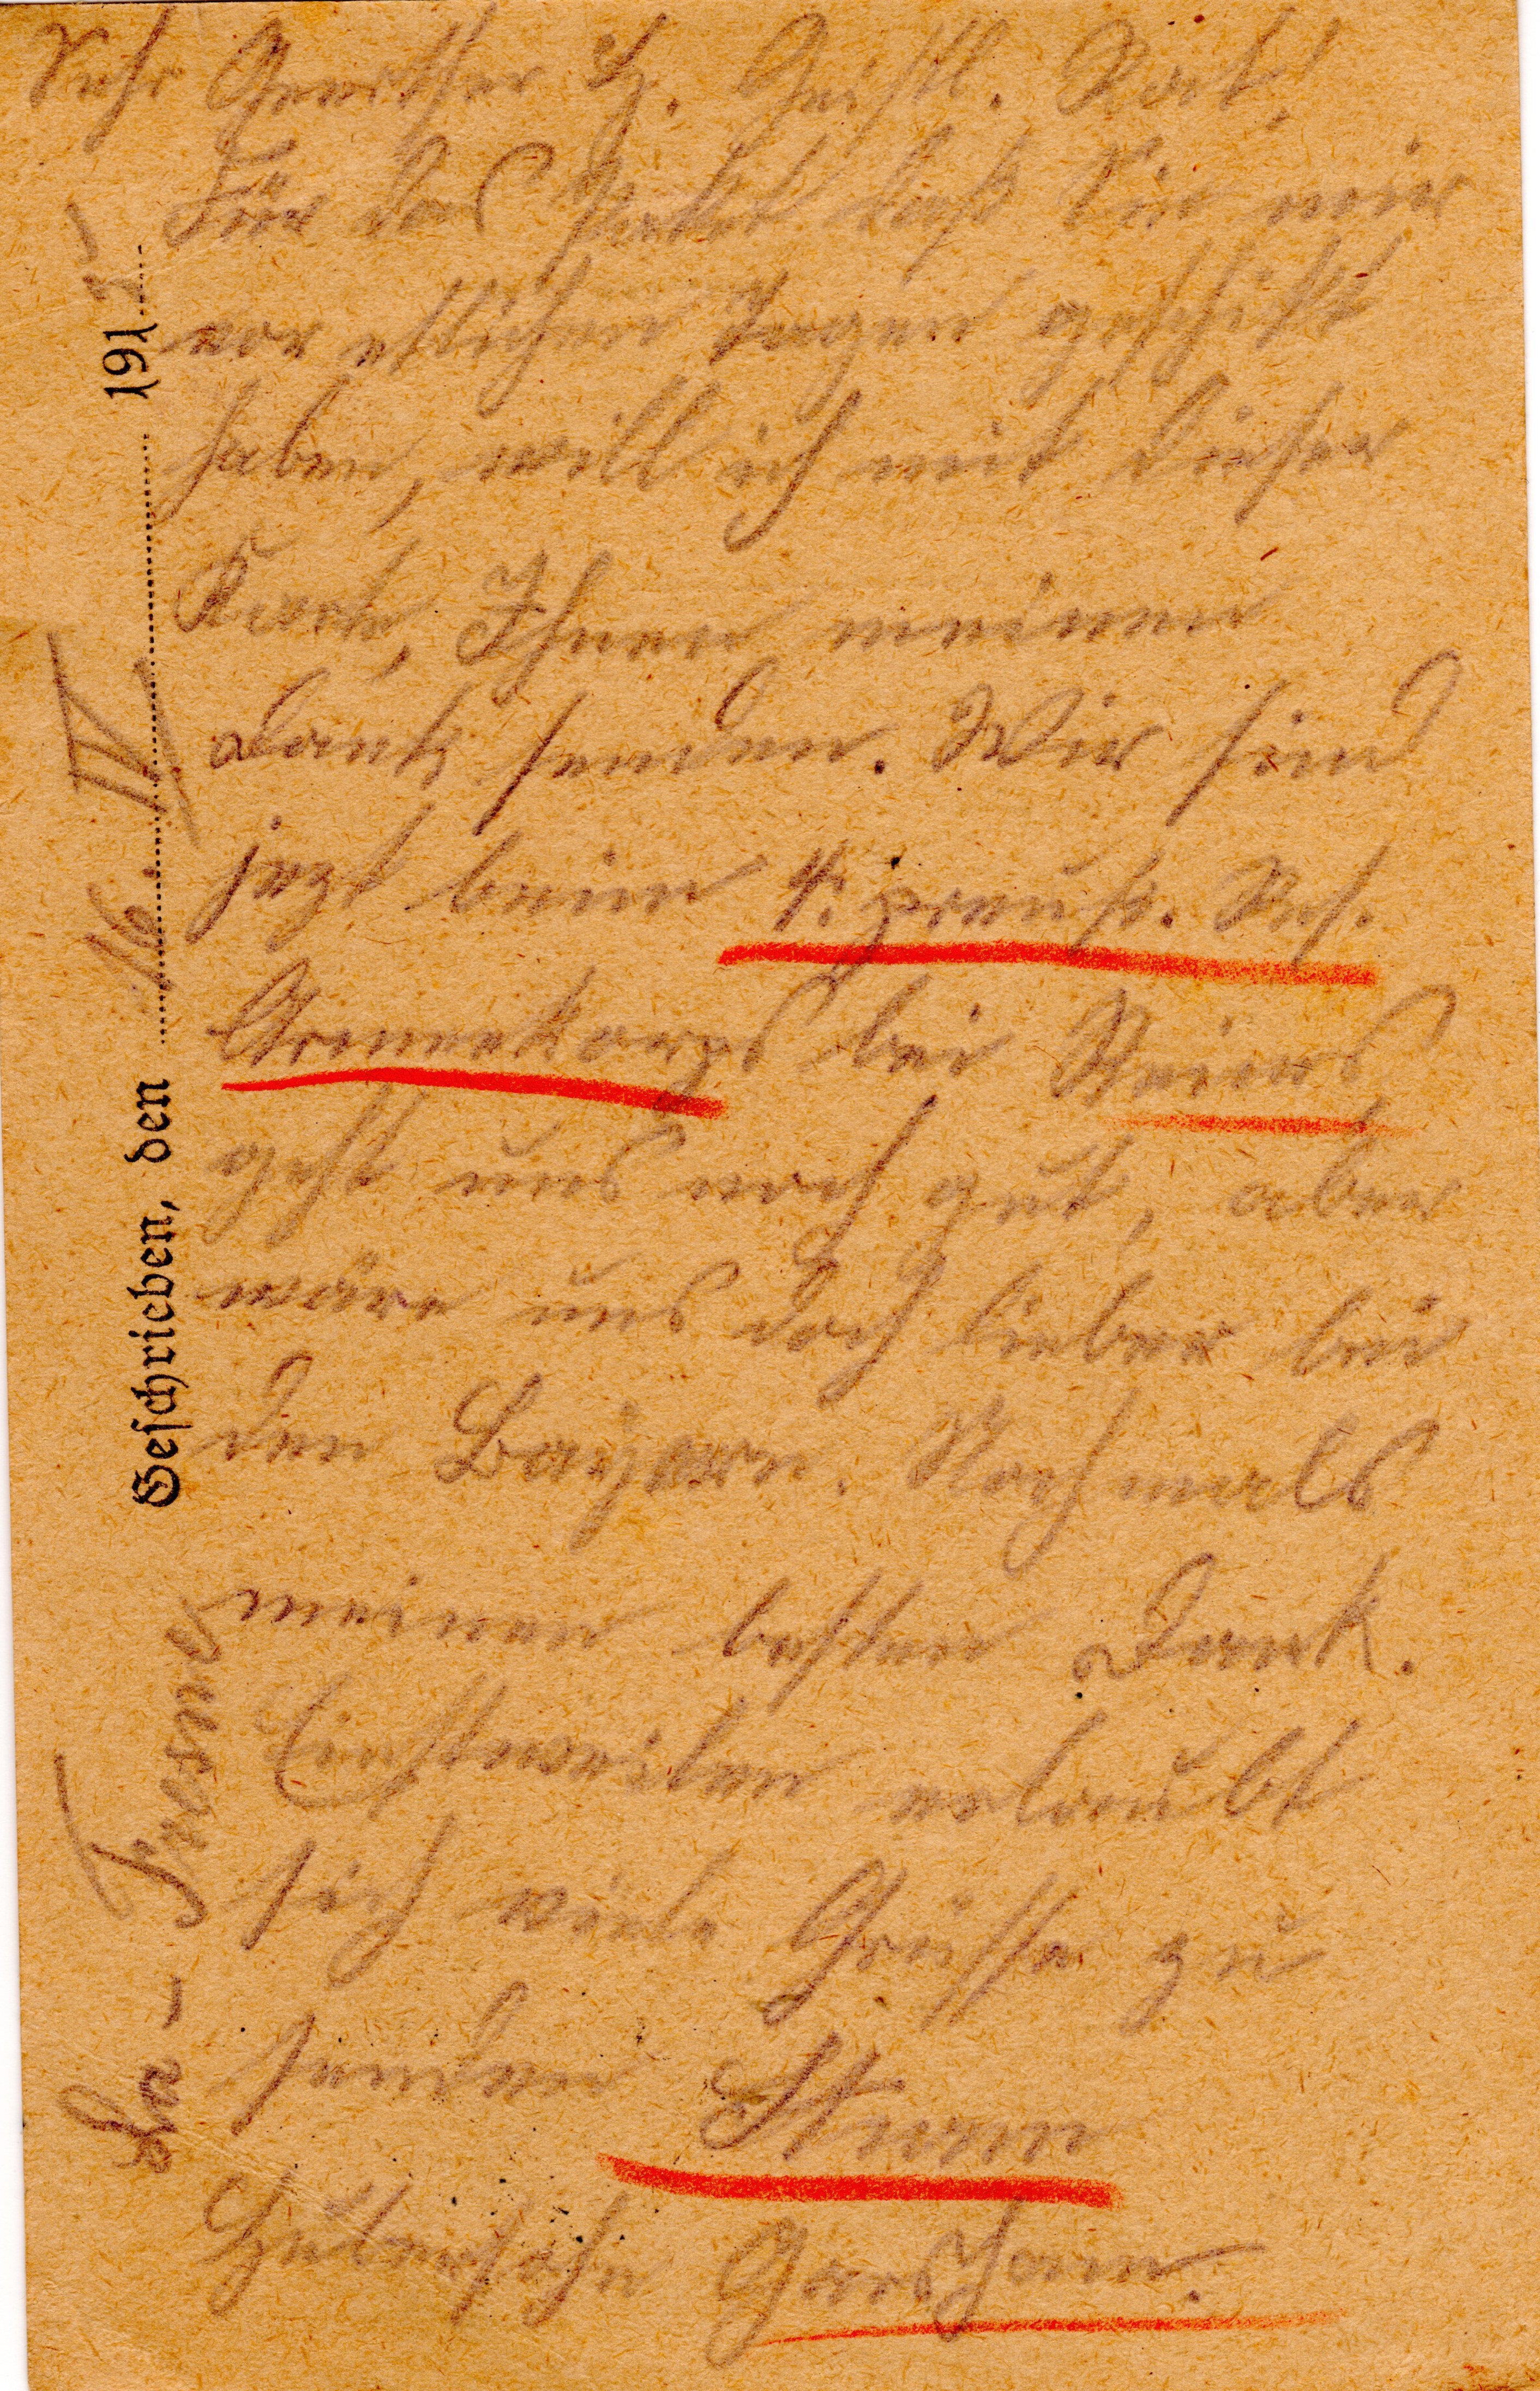 Sehr Geerther H. Geistl. Rat!
Für das Paket daß Sie mir
vor etlichen Tagen geschikt
haben, will ich mit dieser
Karte, Ihnen meinen
Dank senden. Wir sind
jezt beim preuß. Res.
Armeekorps bei Reims
geht uns noch gut, aber
wäre uns doch lieber bei
den Bayern. Nochmals
meinen besten Dank.
Einstweilen erlaubt
sich viele Grüsse zu
senden Sturm
Garsham.
Geschrieben, den 16. IV. 191